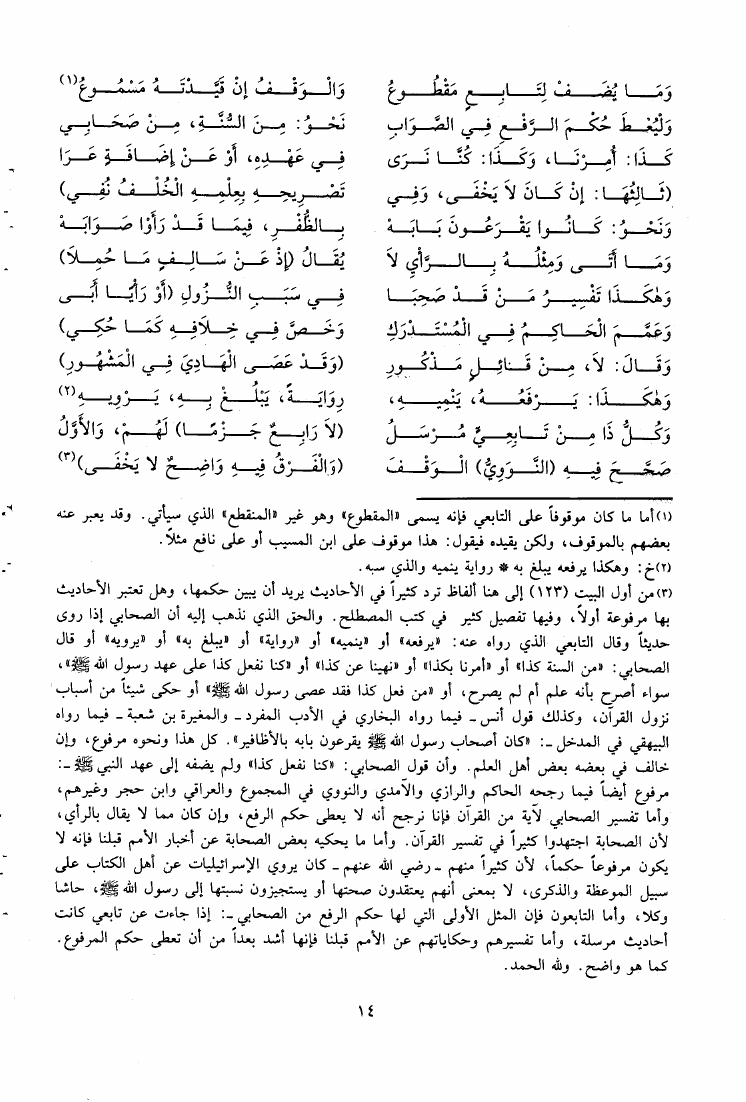 وَمَا يُضَفْ لِتَابِعٍ مَقْطُوعُ وَالْوَقْفُ إِنْ قَيَّدْتَهُ مَسْمُوعُ(١)
وَلْيُعْطَ حُكْمَ الرَّفْعِ فِي الصَّوَابِ نَحْوُ: مِنَ السُّنَّةِ، مِنْ صَحَابِي
كَذَا: أُمِرْنَا، وَكَذَا: كُنَّا نَرَى فِي عَهْدِهِ، أَوْ عَنْ إِضَافَةٍ عَرَا
(ثَالِثُهَا: إِنْ كَانَ لاَ يَخْفَى، وَفِي تَصْرِيحِهِ بِعِلْمِهِ الْخُلْفُ نُفِي)
وَنَحْوُ: كَانُوا يَقْرَعُونَ بَابَهُ بِالظُّفْرِ، فِيمَا قَدْ رَأَوْا صَوَابَهُ
وَمَا أَتَى وَمِثْلُهُ بِالرَّأْيِ لاَ يُقَالُ (إِذْ عَنْ سَالِفٍ مَا حُمِلاَ)
وَهٰكَذَا تَفْسِيرُ مَنْ قَدْ صَحِبَا فِي سَبَبِ النُّزُولِ (أَوْ رَأْيًا أَبَى
وَعَمَّمَ الْحَاكِمُ فِي الْمُسْتَدْرَكِ وَخَصَّ فِي خِلاَفِهِ كَمَا حُكِي)
وَقَالَ: لاَ، مِنْ قَائِلٍ مَذْكُورِ (وَقَدْ عَصَى الْهَادِيَ فِي الْمَشْهُورِ)
وَهٰكَذَا: يَرْفَعُهُ، يَنْمِيهِ، رِوَايَةً، يَبْلُغْ بِهِ، يَرْوِيهِ(٢)
وَكُلُّ ذَا مِنْ تَابِعِيٍّ مُرْسَلُ (لاَ رَابِعٌ جَزْمًا) لَهُمْ، وَالأَوَّلُ
صَحَّحَ فِيهِ (النَّوَوِيُّ) الْوَقْفَ (وَالْفَرْقُ فِيهِ وَاضِحٌ لا يَخْفَى)(٣)
(١) أما ما كان موقوفاً على التابعي فإنه يسمى «المقطوع» وهو غير «المنقطع» الذي سيأتي. وقد يعبر عنه
بعضهم بالموقوف، ولكن يقيده فيقول: هذا موقوف على ابن المسيب أو على نافع مثلاً.
(٢) خ: وهكذا يرفعه يبلغ به * رواية ينميه والذي سبه.
(٣) من أول البيت (١٢٣) إلى هنا ألفاظ ترد كثيراً في الأحاديث يريد أن يبين حكمها، وهل تعتبر الأحاديث
بها مرفوعة أولاً، وفيها تفصيل كثير في كتب المصطلح. والحق الذي نذهب إليه أن الصحابي إذا روى
حديثاً وقال التابعي الذي رواه عنه: «يرفعه» أو «ينميه» أو «رواية» أو «يبلغ به» أو «يرويه» أو قال
الصحابي: «من السنة كذا» أو «أمرنا بكذا» أو «نهينا عن كذا» أو «كنا نفعل كذا على عهد رسول الله ﷺ»،
سواء أصرح بأنه علم أم لم يصرح، أو «من فعل كذا فقد عصى رسول الله ﷺ» أو حكى شيئاً من أسباب
نزول القرآن، وكذلك قول أنس ـ فيما رواه البخاري في الأدب المفرد ـ والمغيرة بن شعبة ـ فيما رواه
البيهقي في المدخل ـ: «كان أصحاب رسول الله ﷺ يقرعون بابه بالأظافير». كل هذا ونحوه مرفوع، وإن
خالف في بعضه بعض أهل العلم. وأن قول الصحابي: «كنا نفعل كذا» ولم يضفه إلى عهد النبي ﷺ ـ:
مرفوع أيضاً فيما رجحه الحاكم والرازي والآمدي والنووي في المجموع والعراقي وابن حجر وغيرهم،
وأما تفسير الصحابي لآية من القرآن فإنا نرجح أنه لا يعطى حكم الرفع، وإن كان مما لا يقال بالرأي،
لأن الصحابة اجتهدوا كثيراً في تفسير القرآن. وأما ما يحكيه بعض الصحابة عن أخبار الأمم قبلنا فإنه لا
يكون مرفوعاً حكماً، لأن كثيراً منهم ـ رضي الله عنهم ـ كان يروي الإسرائيليات عن أهل الكتاب على
سبيل الموعظة والذكرى، لا بمعنى أنهم يعتقدون صحتها أو يستجيزون نسبتها إلى رسول الله ﷺ، حاشا
وكلا، وأما التابعون فإن المثل الأولى التي لها حكم الرفع من الصحابي ـ: إذا جاءت عن تابعي كانت
أحاديث مرسلة، وأما تفسيرهم وحكاياتهم عن الأمم قبلنا فإنها أشد بعداً من أن تعطى حكم المرفوع.
كما هو واضح. ولله الحمد.
١٤